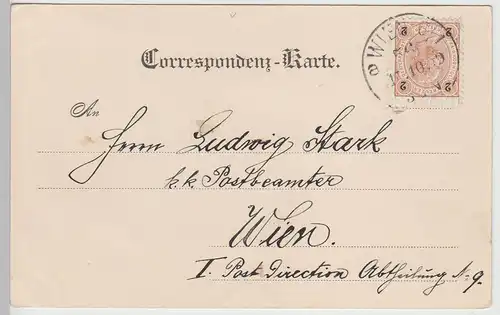 Correspondenz-Karte.
WIEN
2 2
2 2
An
Herrn Ludwig Stark
k.k. Postbeamter
Wien.
I. Post Direction Abtheilung No. 9.